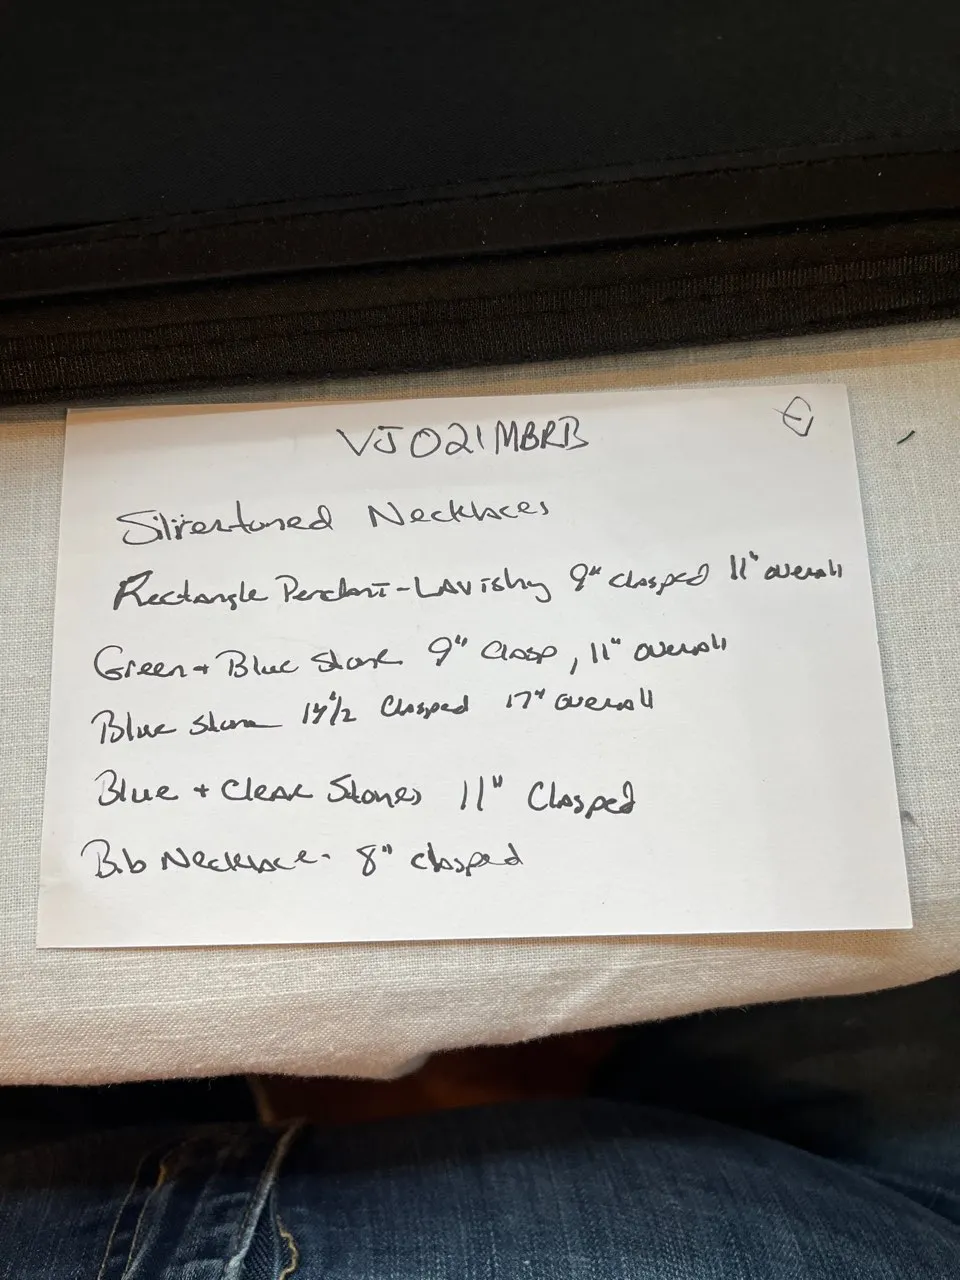 VJ021MBRB
Silvertoned Necklaces
Rectangle Pendant-Lavishy 9" clasped 11" overall
Green + Blue Stone 9" Clasp, 11" overall
Blue Stone 14 1/2 Clasped 17" overall
Blue + Clear Stones 11" Clasped
Bib Necklace - 8" clasped